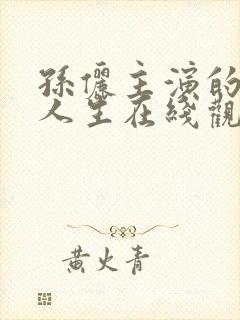 孫儷主演的
人生在綫觀
黄火青